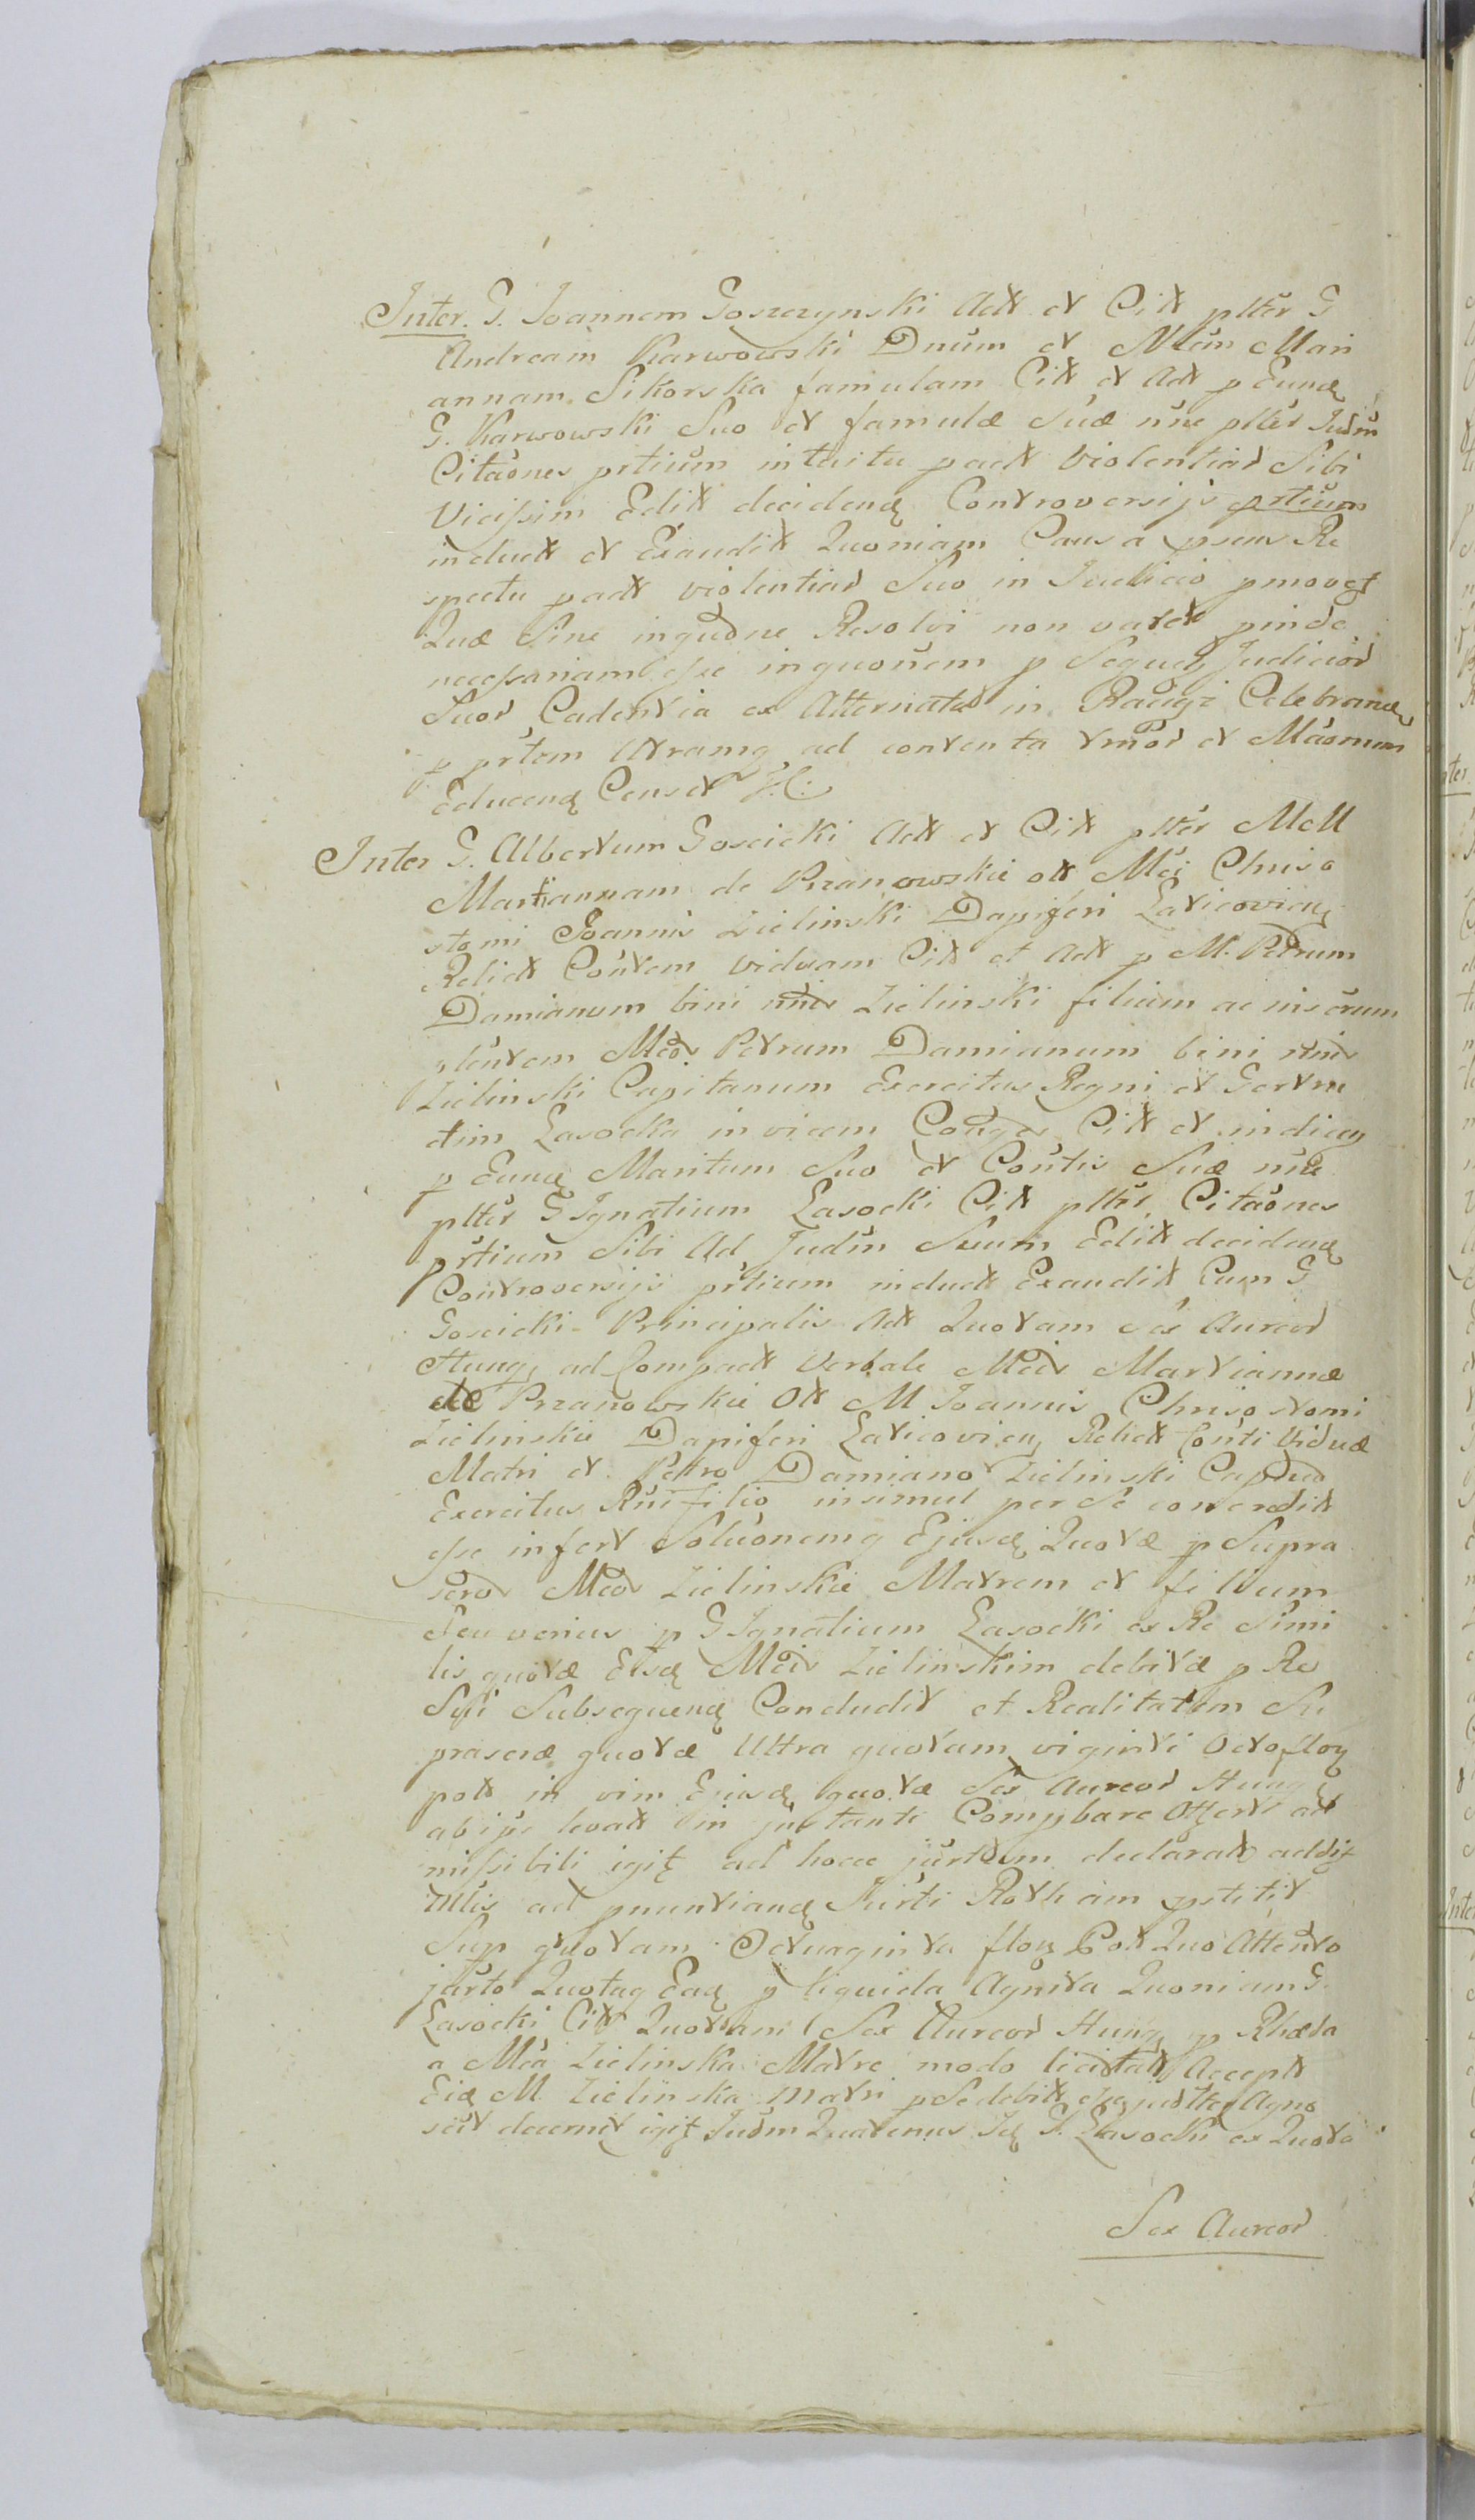 Inter. G. Joannem Goszczynski Actt et Citt plter G
Andream Karwowski Dnum et Nlem Mari
annam Sikorska famulam Citt et Actt p Eund
G. Karwowski Suo et famulæ Suæ nne plter Judm
Citaones prtium intuitu patt violentiar Sibi
Vicissim Editt decidend Controversijs prtium
induct et Exauditt Quoniam Causa psens Re
spectu patt violentiar Suo in Judicio pmovet
Quæ Sine inquone Resolvi non valet pinde
necessariam esse inquonem p Sequen Judicior
Suor Cadentia ex Alternata in Raciąż Celebrand
p prtem Utramq ad contenta tmor et Maonum
Educend Censet J.C.
Inter G. Albertum Goscicki Actt et Citt plter McM
Martiannam de Przanowskie ott Mci Chriso
stomi Joannis Zielinski Dapiferi Laticovien
Relictt Contem viduam Citt et Actt p M. Petrum
Damianum bini nnis Zielinski filium ac
Mcos Petrum Damianum bini nnis
Zielinski Capitanum Exercitus Regni et Gertru
dim Lasocka invicem Conges Citt et indicen
p Eund Maritum Suo et Contis Suæ nne
plter G Ignatium Lasocki Citt plter Citaones
prtium Sibi Ad Judm Suum Editt decidend
Controversijs prtium induct Exauditt Cum G
Goscicki Principalis Actt Quotam Sex Aureor
Hung, ad Compactt Verbale Mcis Martiannæ
de Przanowskie Ott M Joannis Chrisostomi
Zielinskie Dapiferi Laticovien, Relictt Conti Viduæ
Matri et Petro Damiano Zielinski Capneo
Exercitus Rni filio insimul per Se concreditt
esse infert Soluonemq Ejusd Quotæ p Supra
scros Mcos Zielinskie Matrem et filium
Seu verius p G Ignatium Lasocki ex Re Simi
lis quotæ Eisd Mcis Zielinskim debitæ p Re
Subsequend Concludit et Realitatem Su
prascræ quotæ Ultra quotam viginti Octo flor
patt in vim Ejusd quotæ Sex Aureor Hung
ab ipso levatt in jutanti Comprobare Offert ad
missibili igit ad hocce jurtum declaratt
ad pnuntiand Jurti Rotham pstitit
Sup quotam Octuaginta flor Pott Quo Attento
jurto Quotaq Ead p liquida Agnita Quoniam G.
Lasocki Citt Quotam Sex Aureor Hung p Rhæda
a Mca Zielinska Matre modo licitatt Acceptt
Eid M. Zielinska Matri p Se debitt esse Agno
scit decernit igit Judm Quatenus Id G. Lasocki ex Quota
Sex Aureor